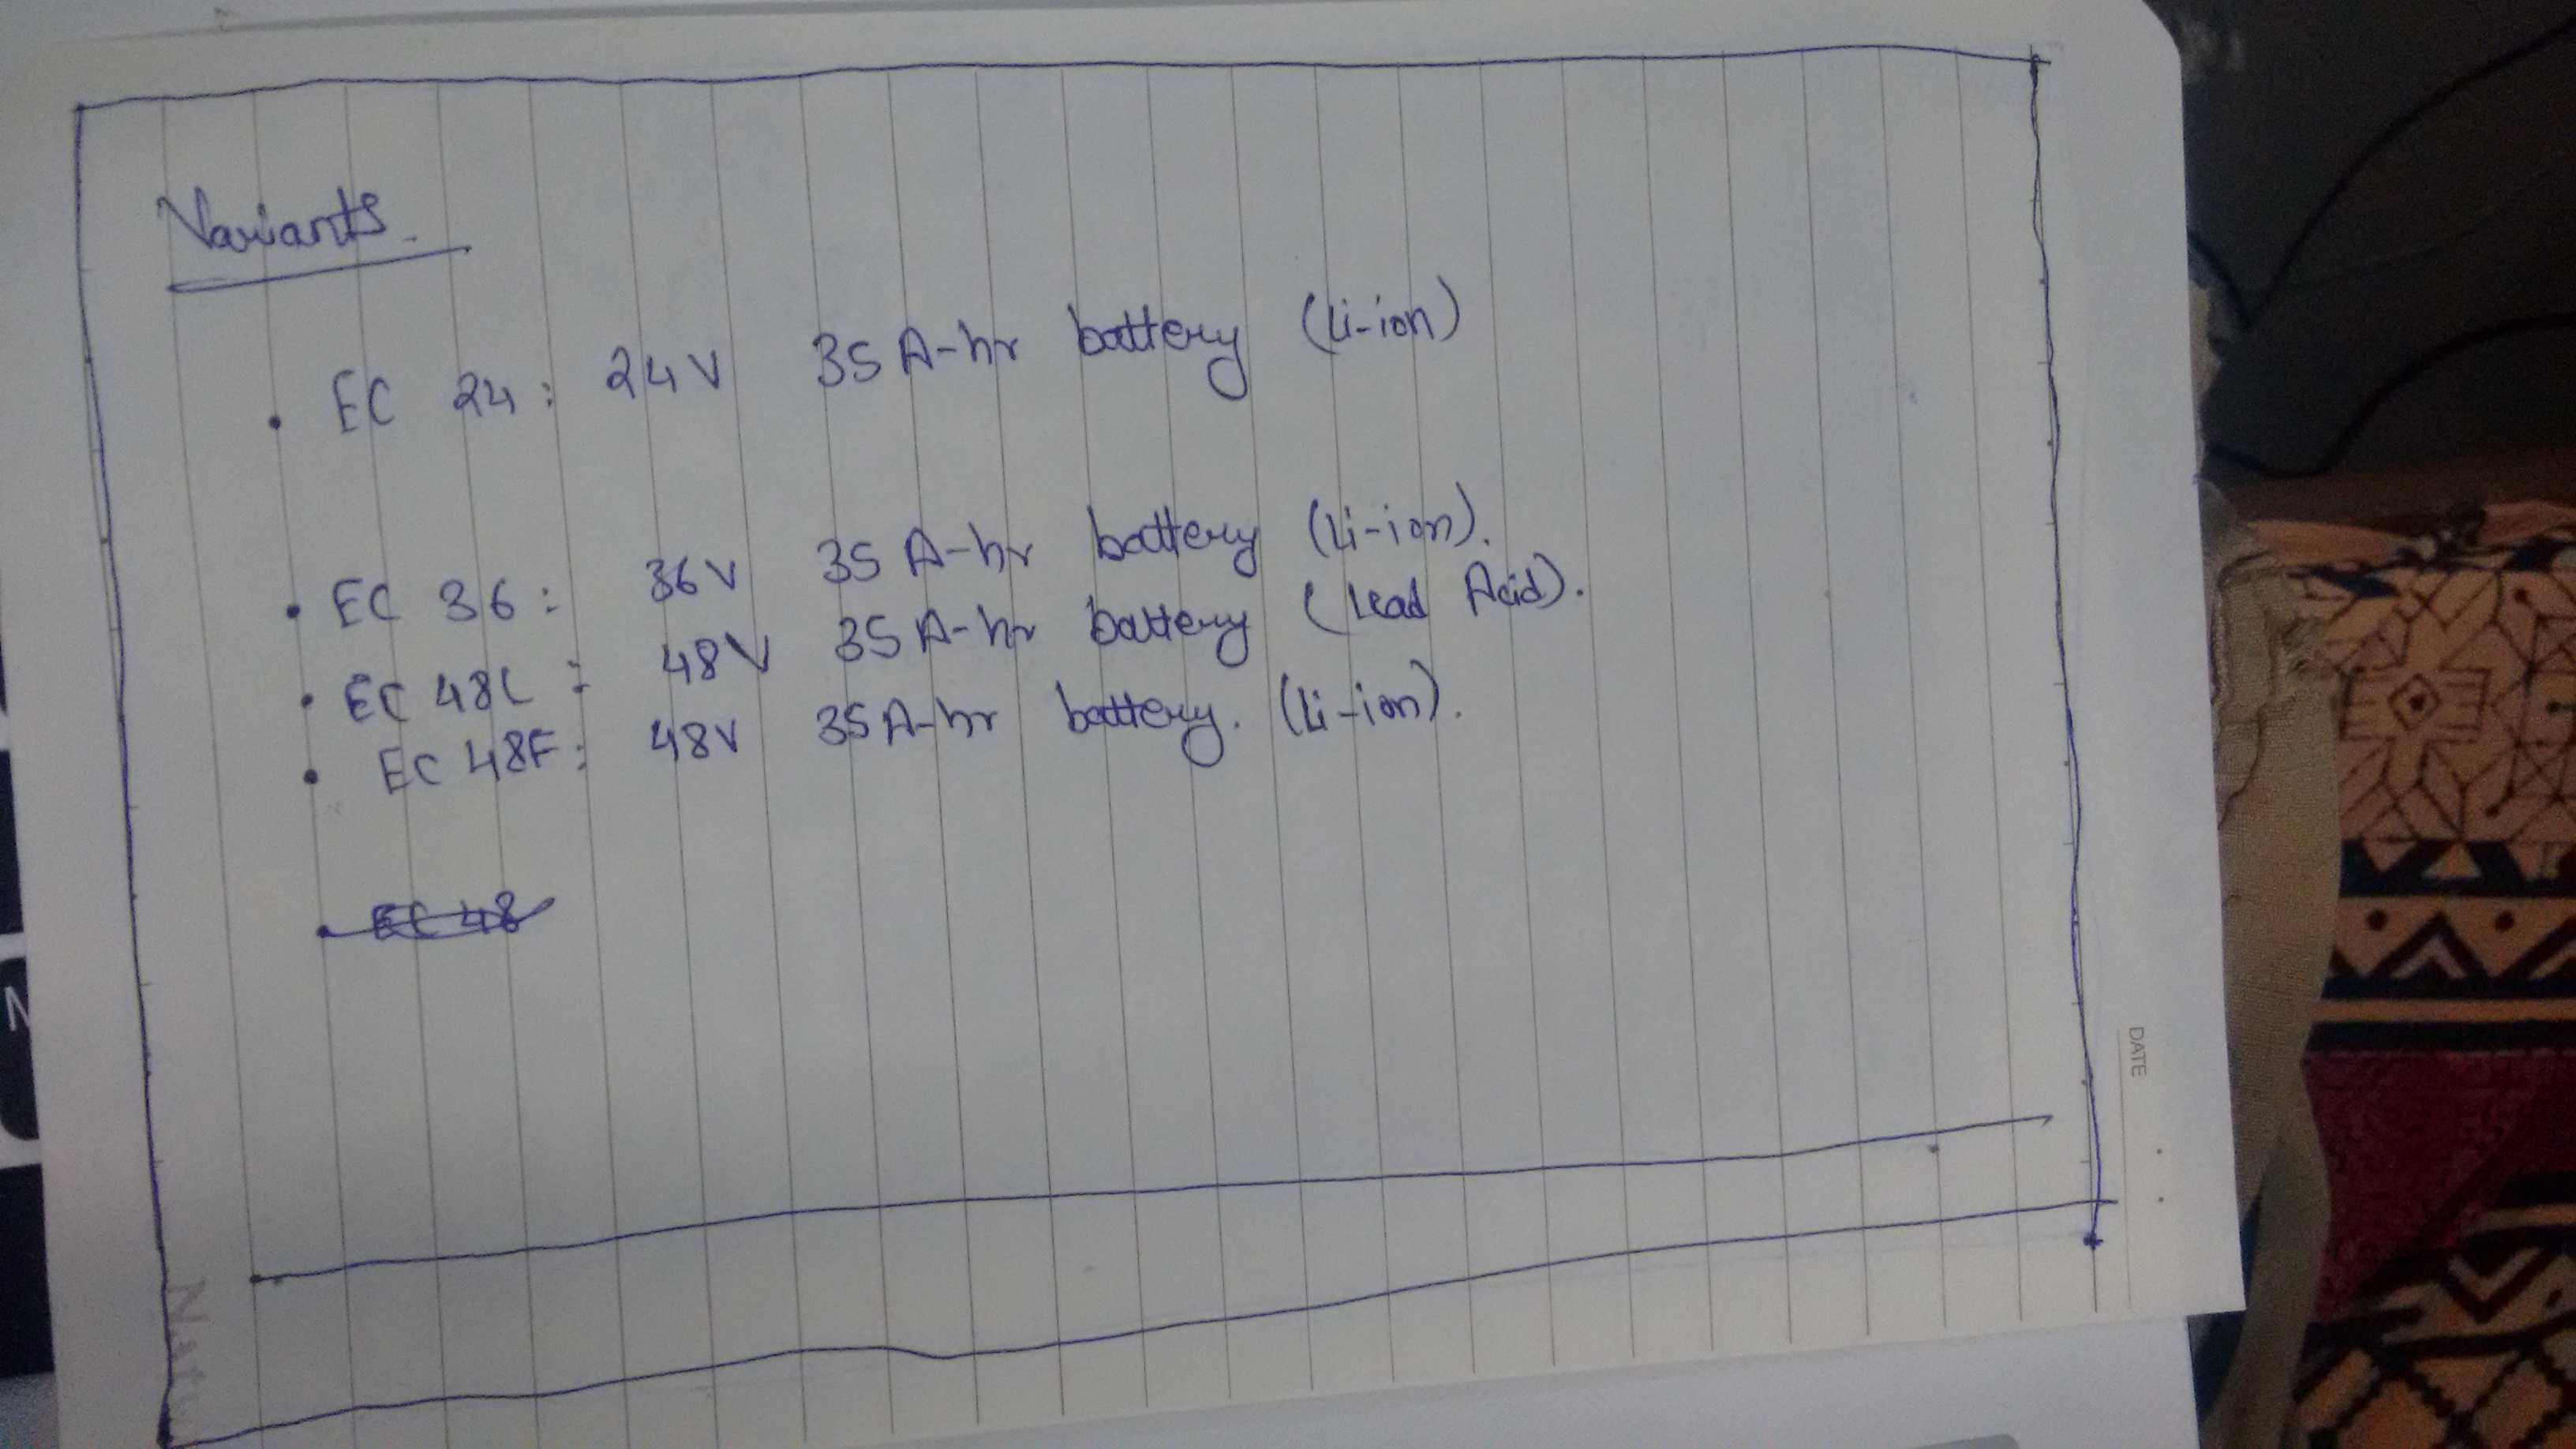 Variants.
• EC 24: 24V 35 A-hr battery (Li-ion)
• EC 36: 36V 35 A-hr battery (Li-ion).
• EC 48L: 48V 35 A-hr battery (Lead Acid).
• EC 48F: 48V 35 A-hr battery. (Li-ion).
• EC 48
DATE